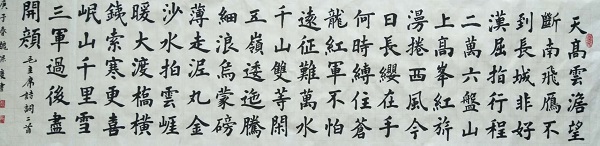 天高雲澹望
斷南飛雁不
到長城非好
漢屈指行程
二萬六盤山
上高峯紅旂
漫捲西風今
日長纓在手
何時縛住蒼
龍紅軍不怕
遠征難萬水
千山隻等閒
五嶺逶迤騰
細浪烏蒙磅
薄走泥丸金
沙水拍雲崖
暖大渡橋橫
鐵索寒更喜
岷山千里雪
三軍過後盡
開顏
毛主席詩詞二首
庚子春魏洪書